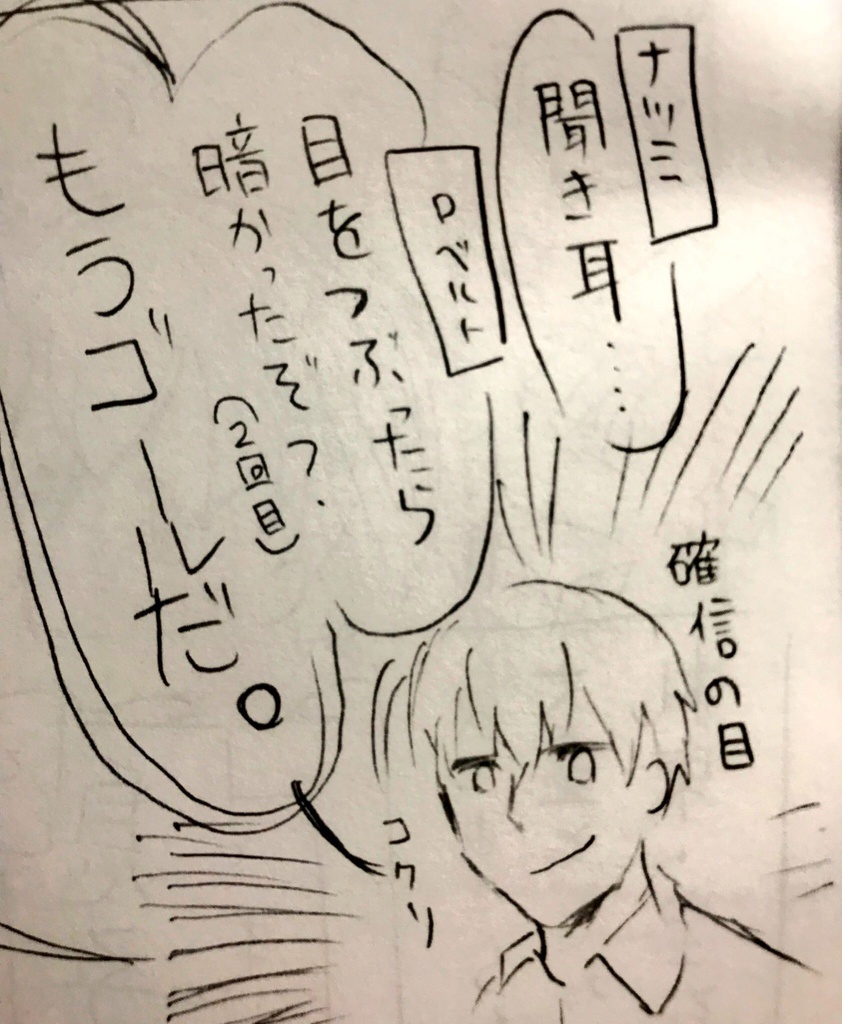 ナツミ
聞き耳....
ロベルト
目をつぶったら
暗かったぞっ.
(2回目)
もうゴールだ。
確信の目
コクリ